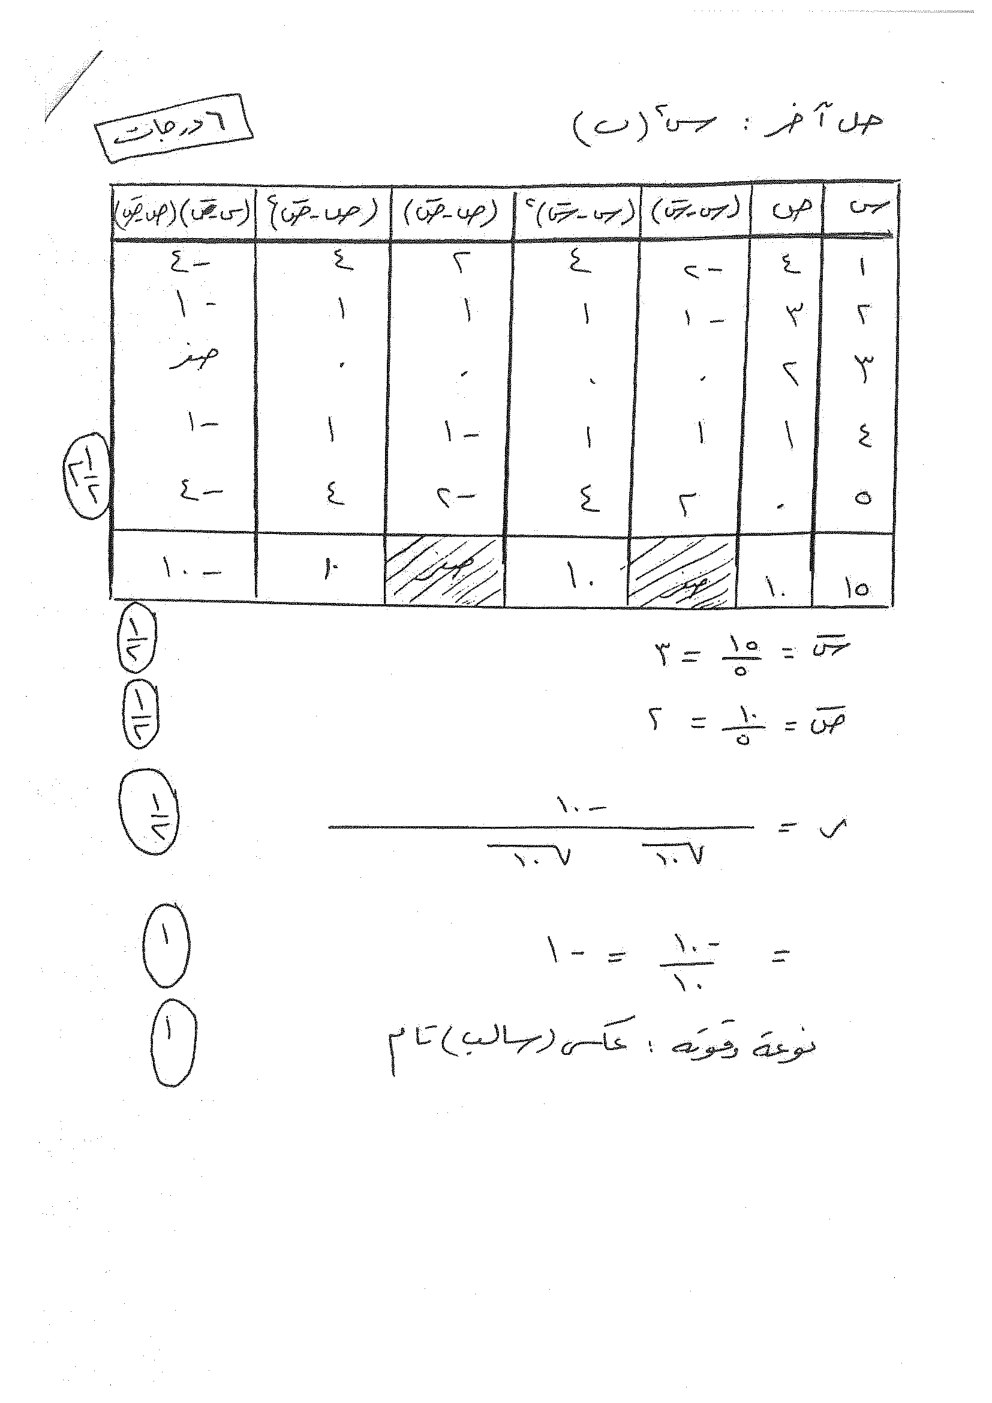 حل آخر : س٢ (ب)
٦ درجات
س | ص | (س-س̄) | (س-س̄)٢ | (ص-ص̄) | (ص-ص̄)٢ | (س-س̄)(ص-ص̄)
١ | ٤ | -٢ | ٤ | ٢ | ٤ | -٤
٢ | ٣ | -١ | ١ | ١ | ١ | -١
٣ | ٢ | ٠ | ٠ | ٠ | ٠ | صفر
٤ | ١ | ١ | ١ | -١ | ١ | -١
٥ | ٠ | ٢ | ٤ | -٢ | ٤ | -٤
٢ ١/٢
١٥ | ١٠ | صفر | ١٠ | صفر | ١٠ | -١٠
س̄ = ١٥/٥ = ٣ ١/٢
ص̄ = ١٠/٥ = ٢ ١/٢
ر = -١٠ / √١٠ √١٠ ١/٢
= -١٠/١٠ = -١ ١
نوعه وقوته : عكسي (سالب) تام ١